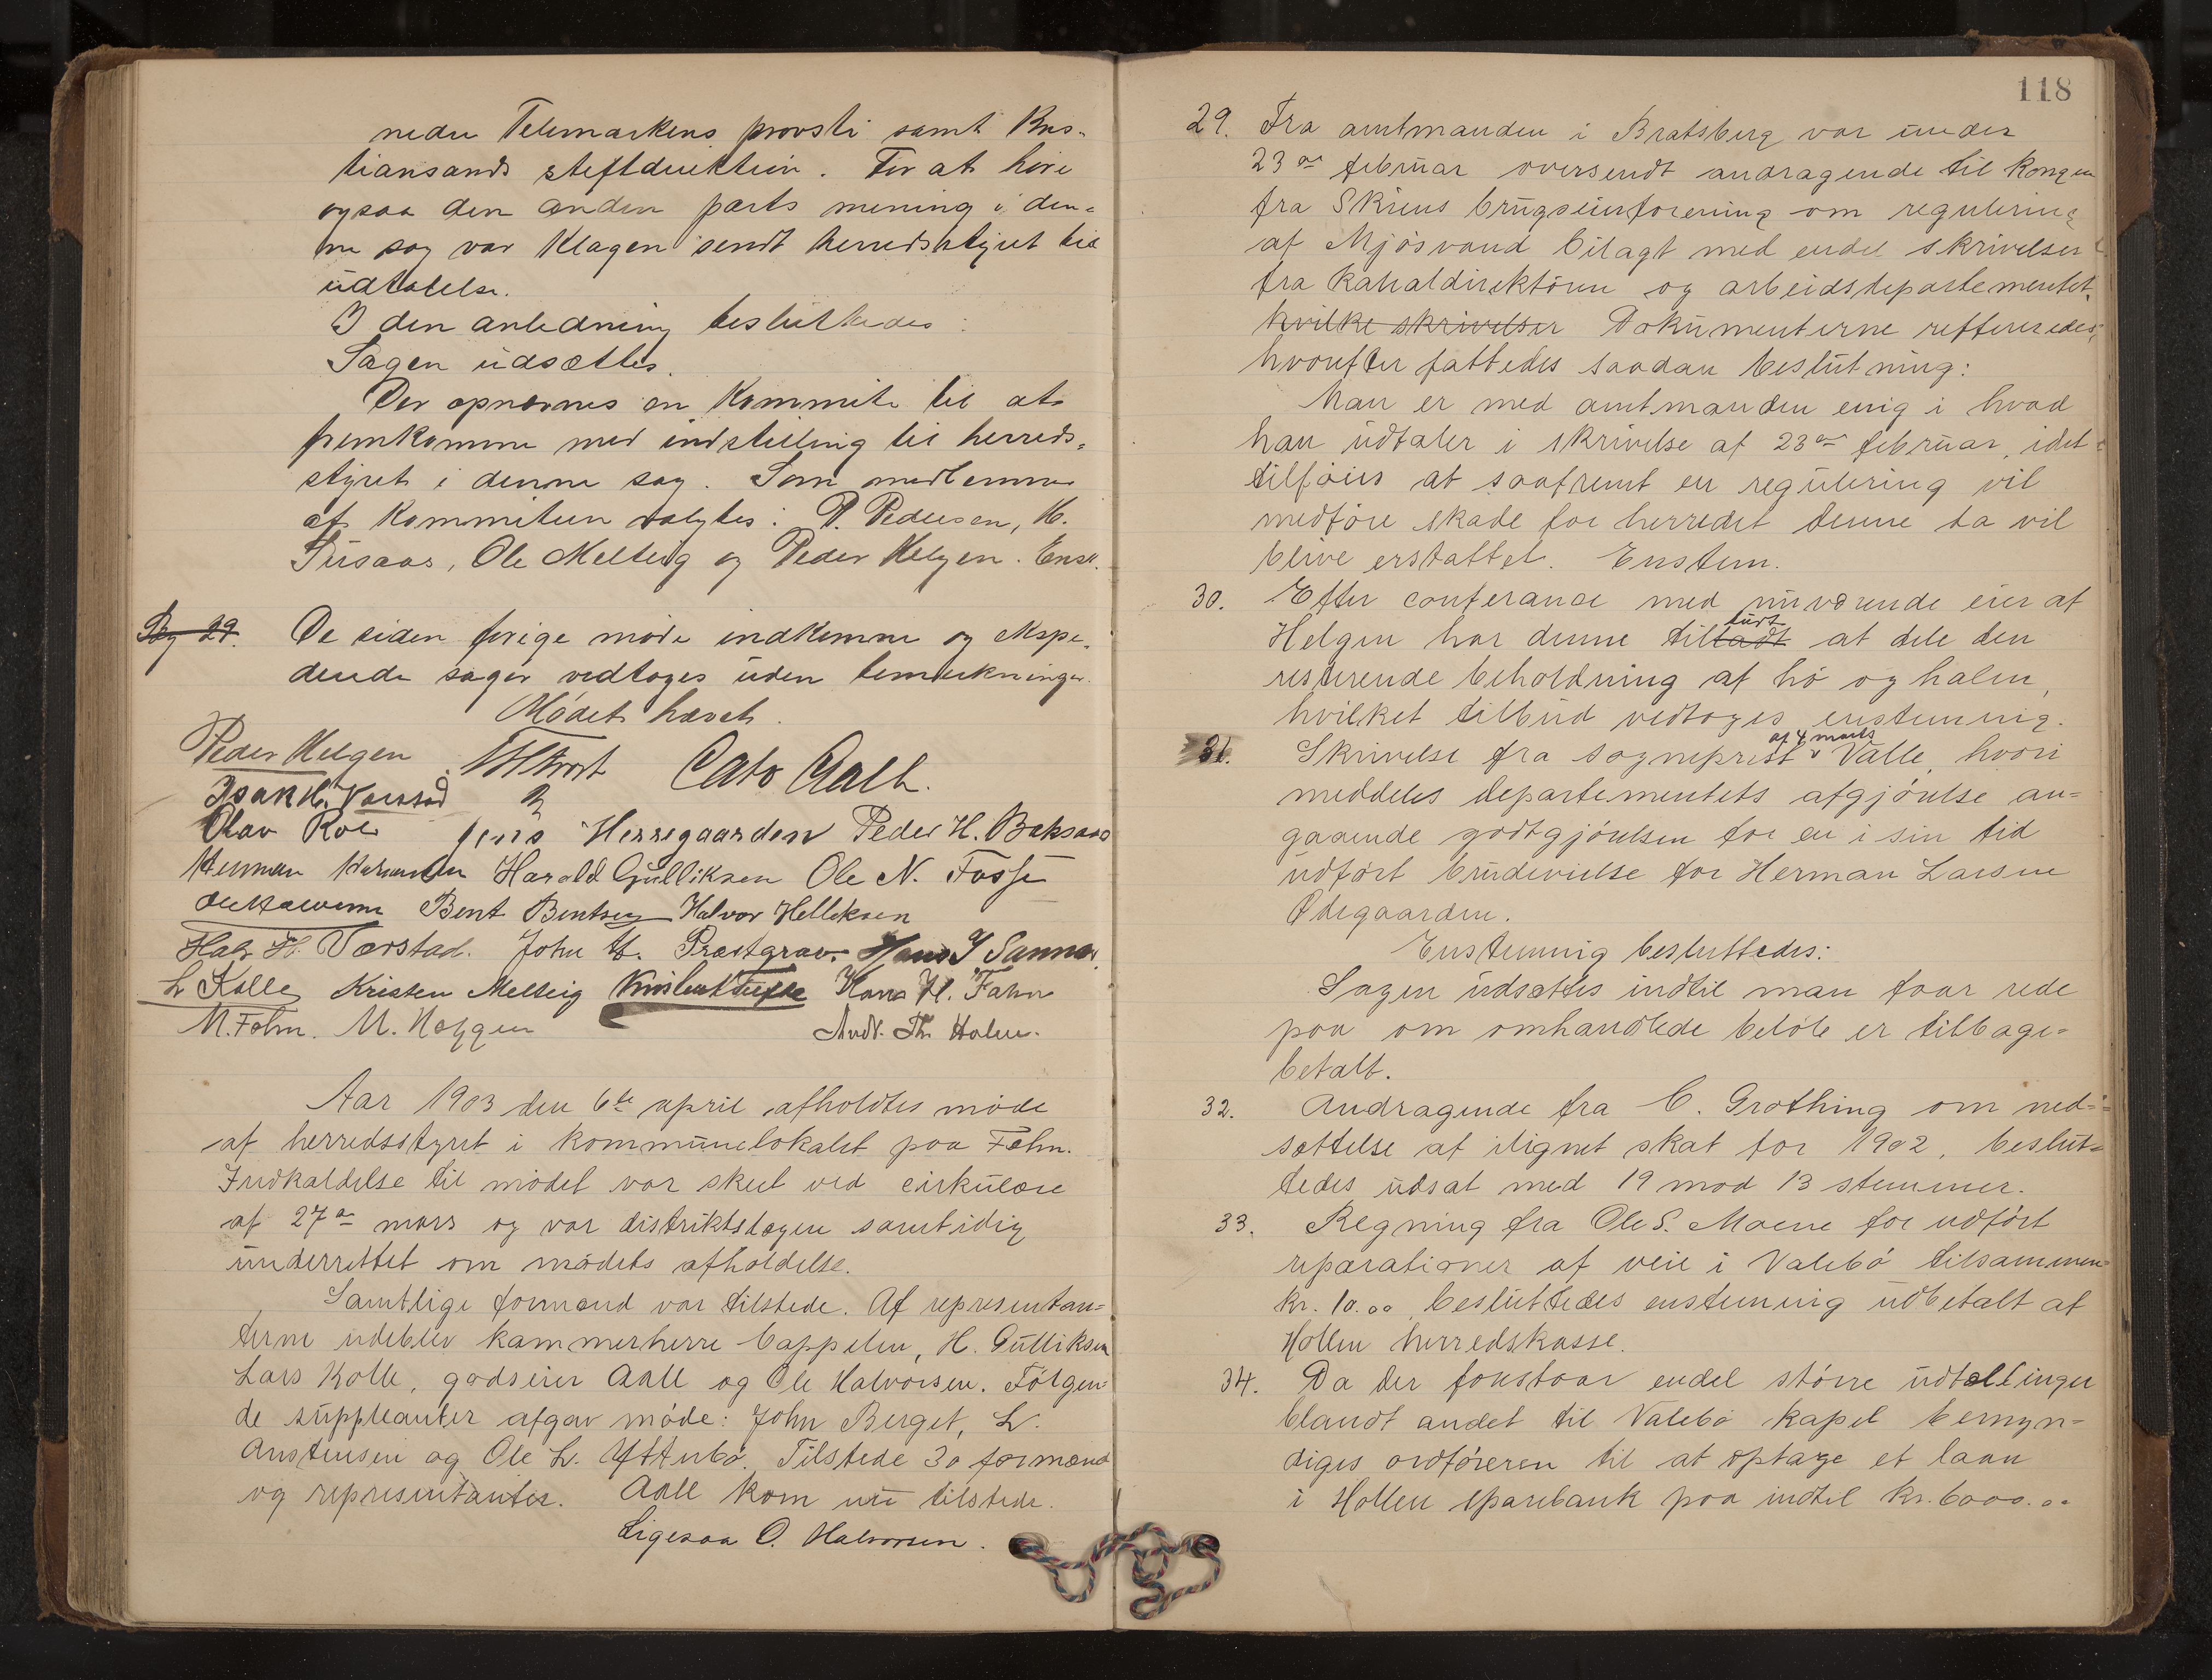 nedre Telemarkens provsti samt Kris-
tiansands stiftdirektion. For at höre
ogsaa den anden parts mening i den-
ne sag var klagen sendt herredsstyret til
udtalelse.
I den anledning besluttedes:
Sagen udsættes.
Der opnævnes en Kommite til at
fremkomme med indstilling til herreds-
styret i denne sag. Som medlemmer
af Kommiteen valgtes: P. Pedersen, H.
Tusaas, Ole Melteig og Peder Helgen. Enst.
Sag 29. De siden forige möde indkomne og ekspe-
derede sager vedtoges uden bemerkninger.
Mödet hævet.
Peder Helgen Cato Aall.
Isak H. Vaerstad
Olav Roe Jens Herregaarden Peder H. Baksaas
Herman Harald Gulliksen Ole N. Fosse
Bent Bentsen Halvor Helleksen
Halv. H. Værstad. John H. Præstgrav. Hans J Sannes.
L Kolle Kristen Melteig Hans H. Fahn
M. Fehn. M. Heggen And. Th. Holm.
Aar 1903 den 6te april afholdtes möde
af herredsstyret i kommunelokalet paa Fehn.
Indkaldelse til mödet var skeet ved cirkulære
af 27de mars og var distriktslægen samtidig
underrettet om mödets afholdelse.
Samtlige formænd var tilstede. Af representan-
terne udeblev kammerherre Cappelen, H. Gulliksen
Lars Kolle, godseier Aall og Ole Halvorsen. Fölgen-
de suppleanter afgav möde: John Berget, L.
Austensen og Ole L. Ytterbö. Tilstede 30 formænd
og representanter. Aall kom nu tilstede.
Ligesaa O. Halvorsen.
118
29. Fra amtmanden i Bratsberg var under
23de februar oversendt andragende til Kongen
fra Skiens brugseierforening om regulering
af Mjösvand bilagt med endel skrivelser
fra kanaldirektören og arbeidsdepartementet,
hvilke skrivelser Dokumenterne reffereredes,
hvorefter fattedes saadan beslutning:
Man er med amtmanden enig i hvad
han udtaler i skrivelse af 23de februar, idet
tilföies at saafremt en regulering vil
medföre skade for herredet denne da vil
blive erstattet. Enstem.
30. Efter conferance med nuværende eier af
Helgen har denne tilladt at dele den
resterende beholdning af hö og halm,
hvilket tilbud vedtoges enstemmig.
31. Skrivelse fra sogneprest Valle af 4 marts, hvori
meddeles departementets afgjörelse an-
gaaende godtgjörelsen for en i sin tid
udfört brudevielse for Herman Larsen
Ødegaarden.
Enstemmig besluttedes:
Sagen udsættes indtil man faar rede
paa om omhandlede belöb er tilbage-
betalt.
32. Andragende fra C. Grothing om ned-
sættelse af ilignet skat for 1902, beslut-
tedes udsat med 19 mod 13 stemmer.
33. Regning fra Ole S. Moene for udfört
reparationer af veie i Valebö tilsammen
kr. 10.00 besluttedes enstemmig udbetalt af
Hollen herredskasse.
34. Da der forestaar endel större udtellinger
blandt andet til Valebö kapel bemyn-
diges ordföreren til at optage et laan
i Hollen sparebank paa indtil kr. 6000.00